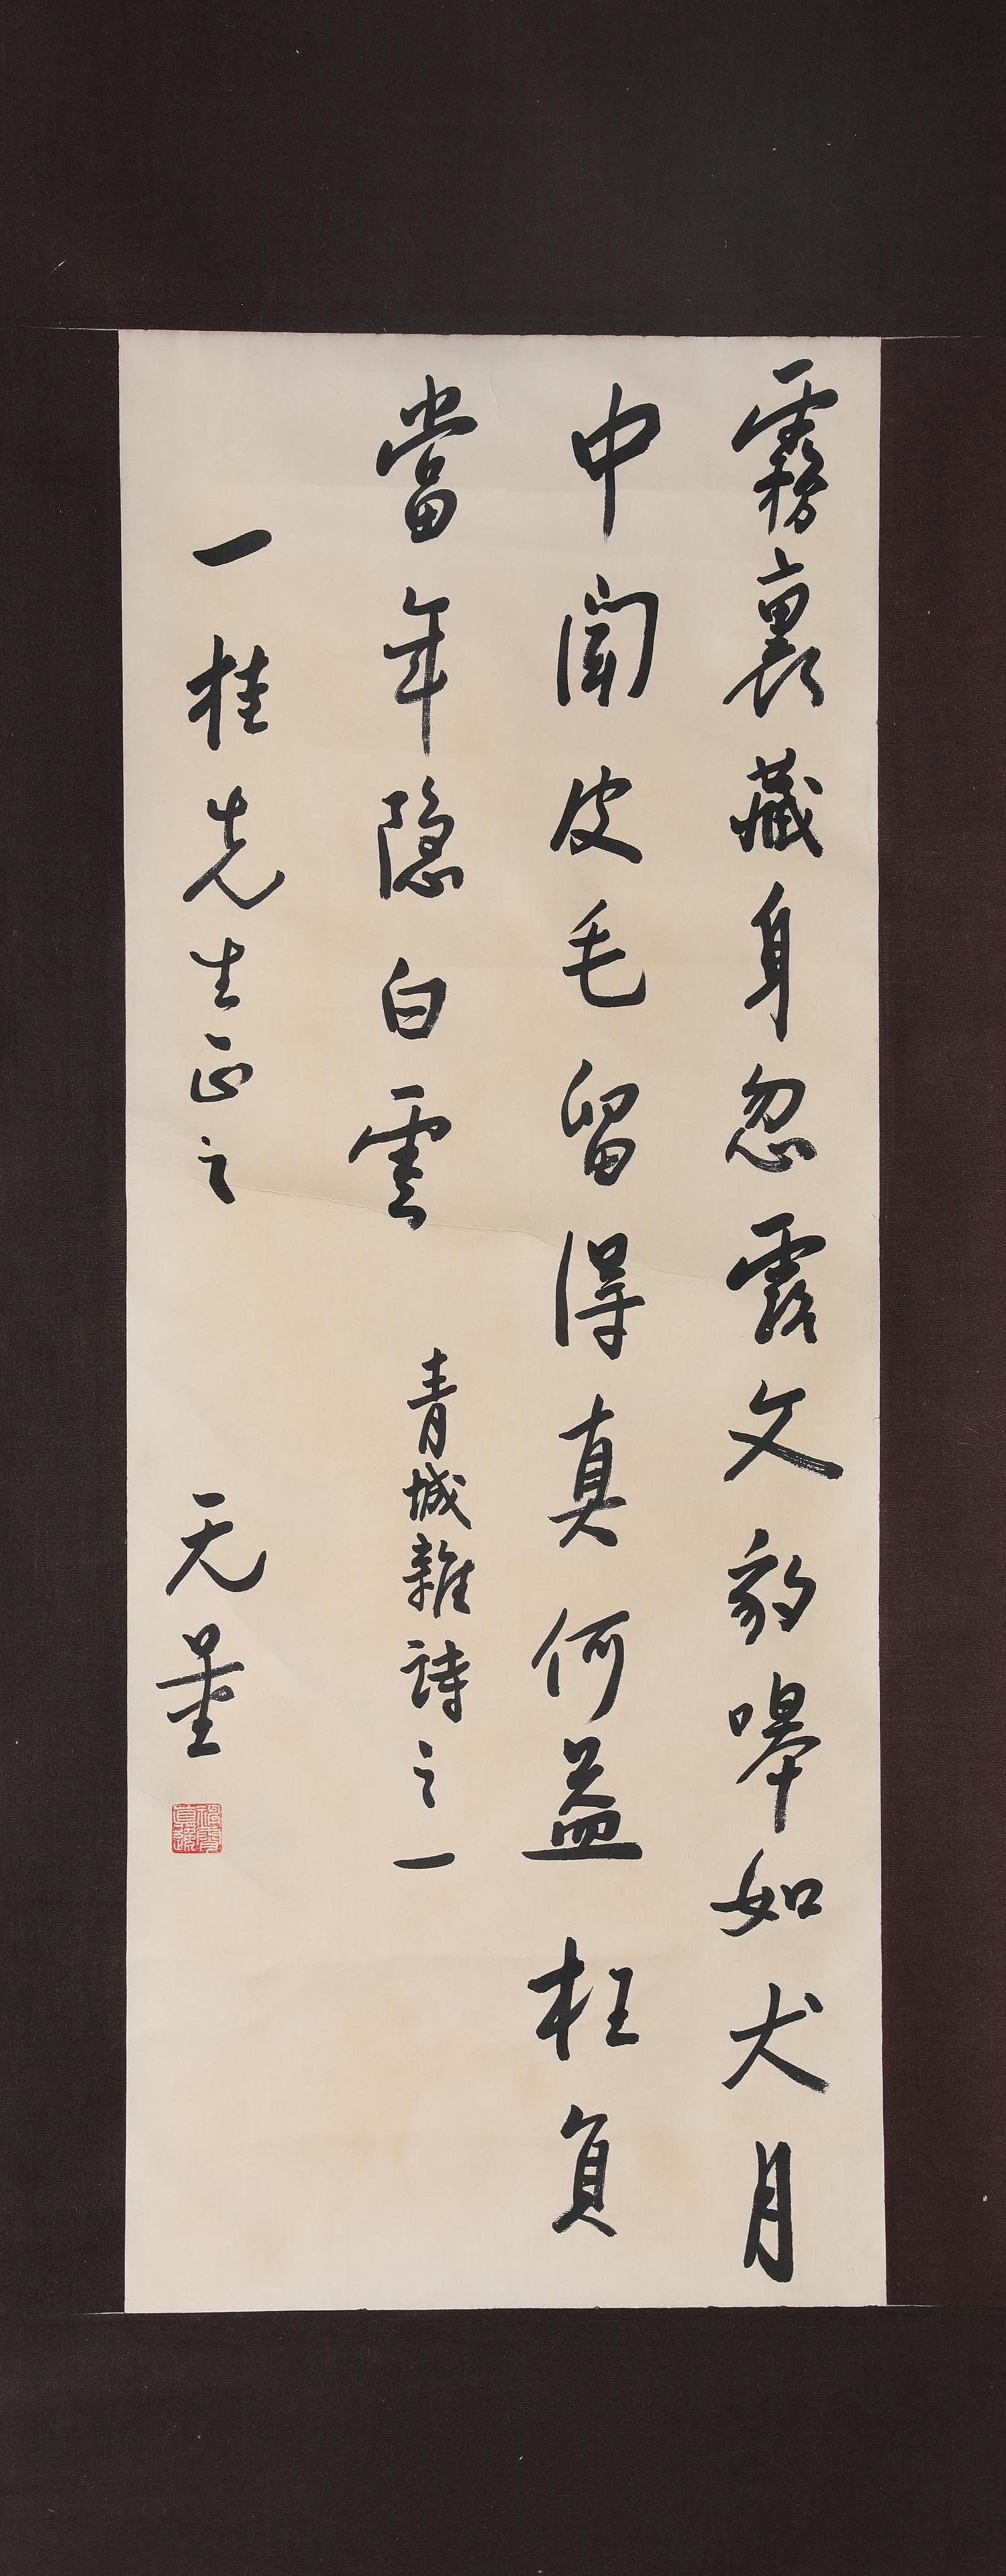 霧裏藏身忽露文豹嗥如犬月
中聞皮毛留得真何益枉負
當年隐白雲 青城雜詩之一
一桂先生正之 无量